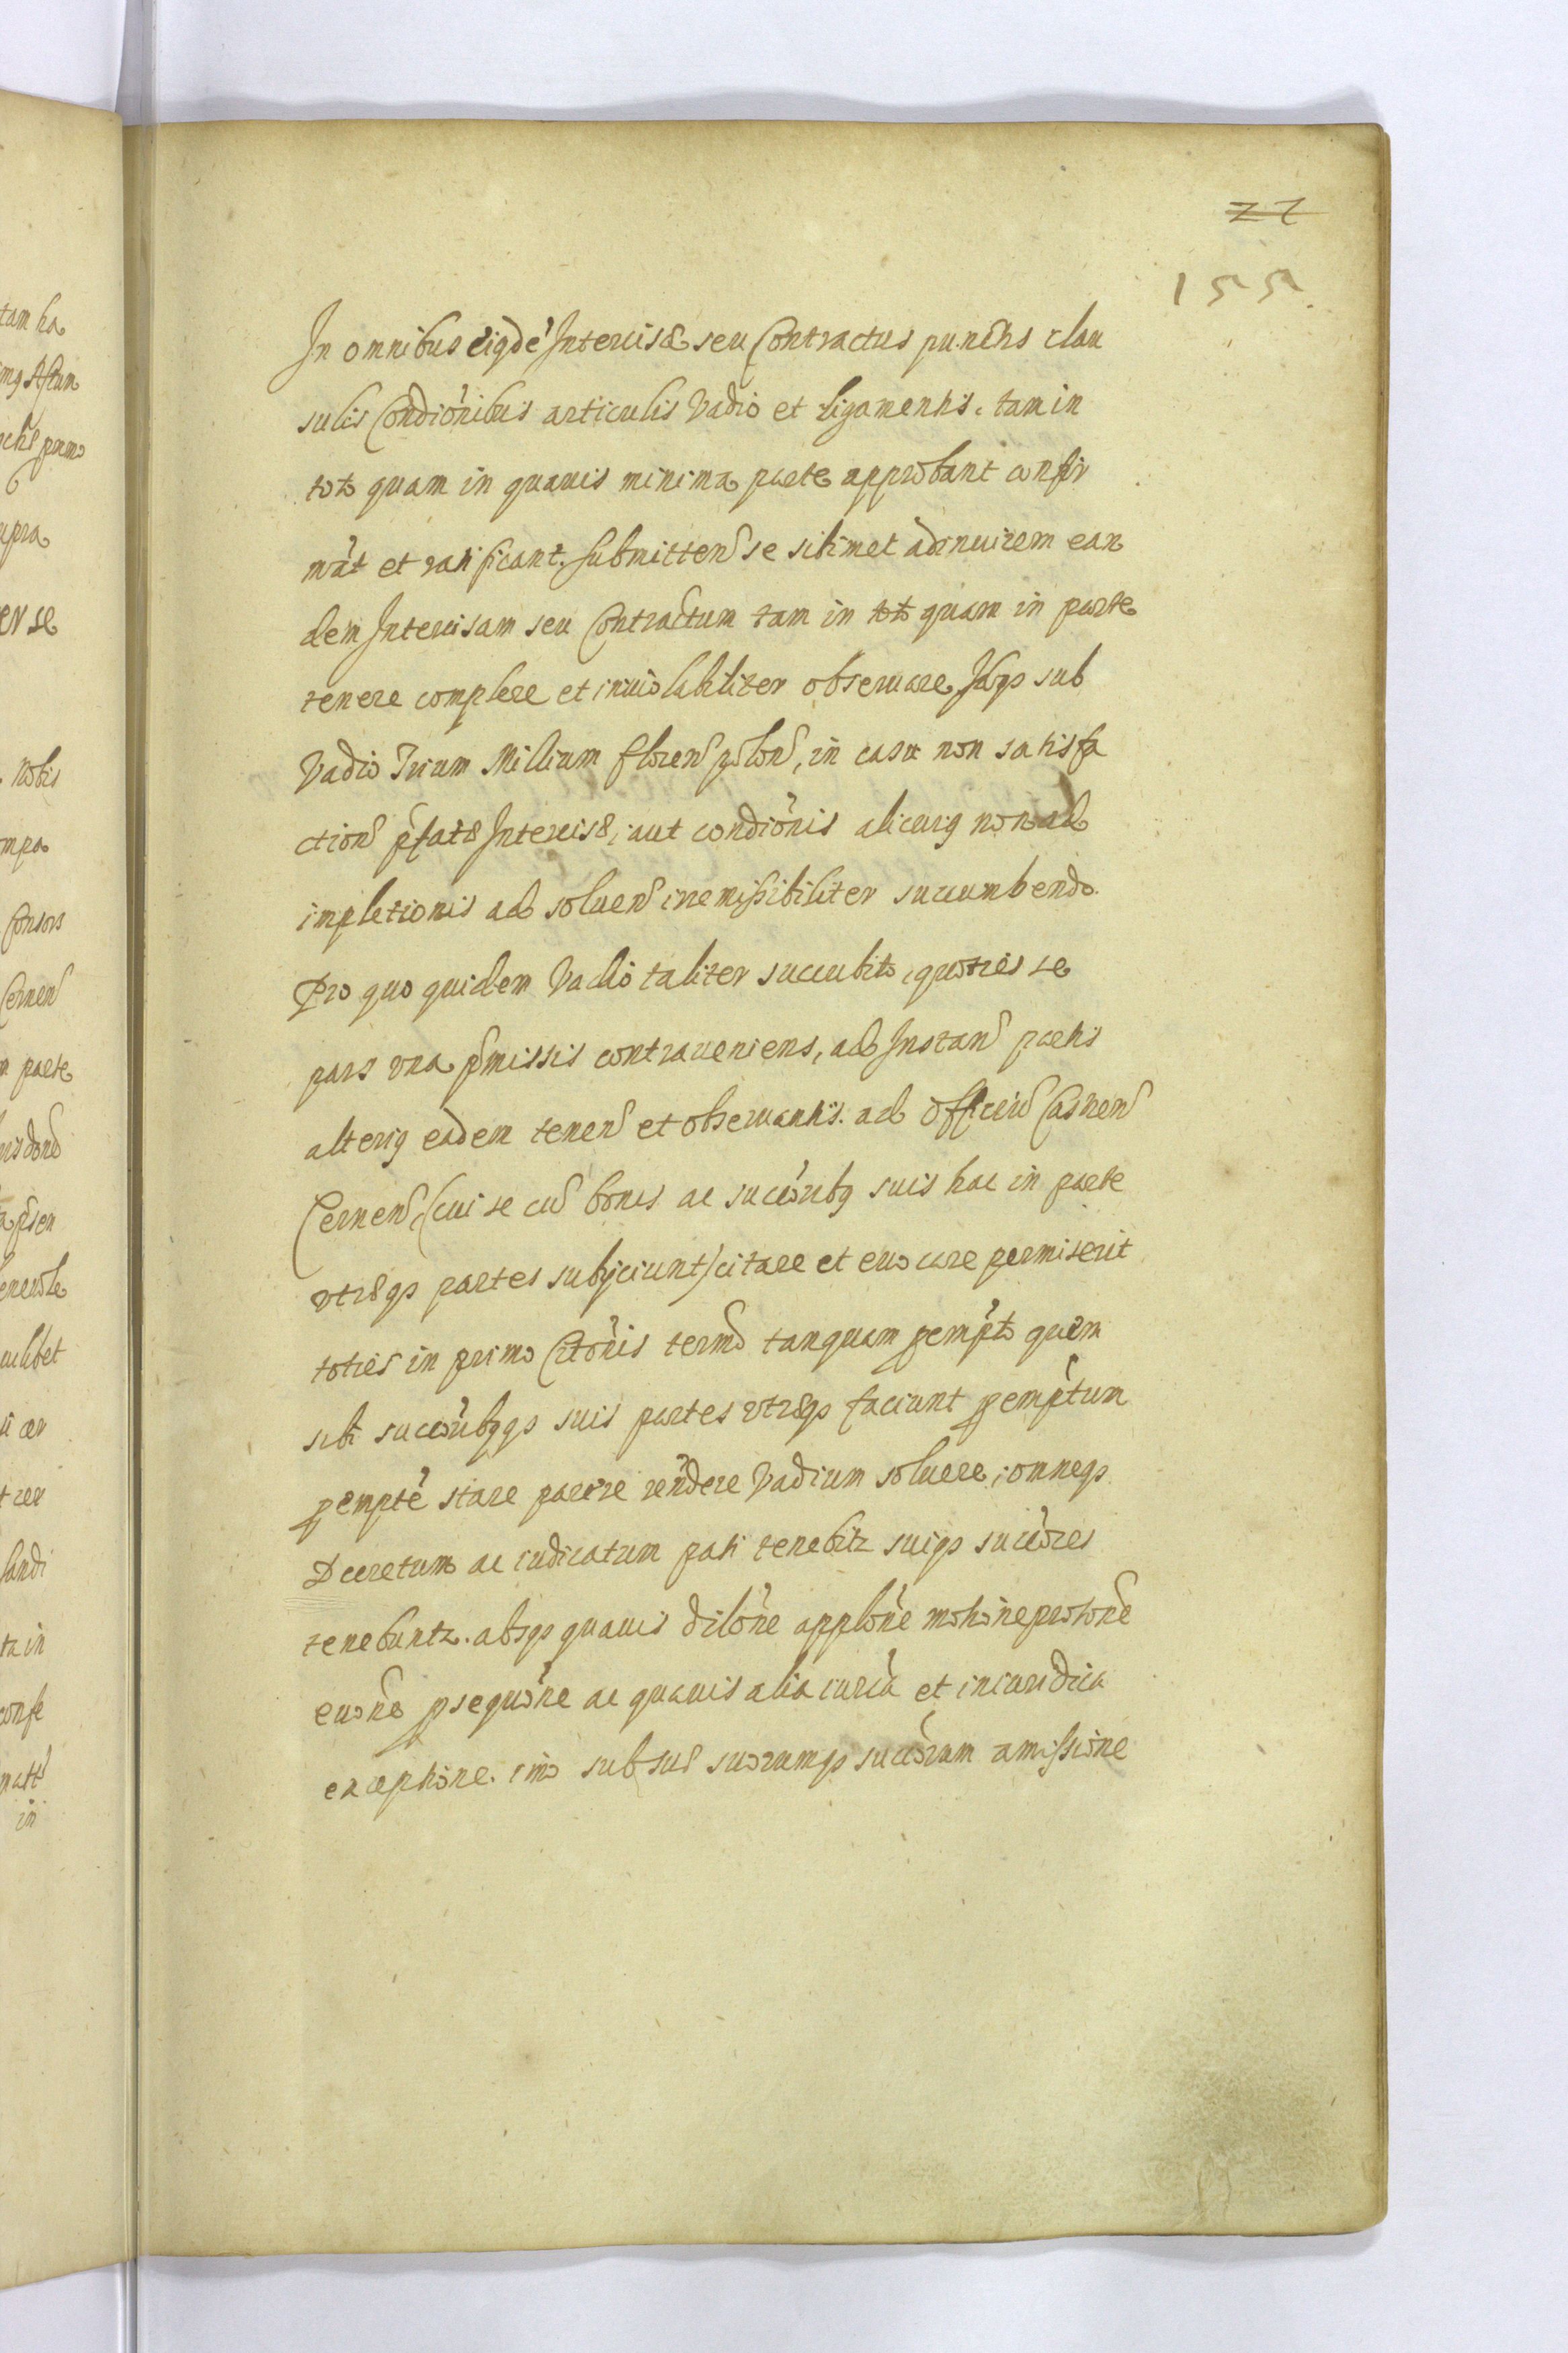 22
155
In omnibus eiqde Intercisæ seu Contractus punctis clau
sulis Condionibus articulis Vadio et ligamentis. tam in
toto quam in quauis minima parte approbant confir
mat et ratificant. Submitten se sibimet adinuicem ean
dem Intercisam seu Contractum tam in toto quam in parte
tenere complere et inuiolabiliter obseruare, Idq3 sub
Vadio Trium Millium floren polon, in casu non satisfa
ction pfatæ Intercisæ, aut condionis alicuig non ad
impletionis ad soluen irremissibiliter succumbendo.
Pro quo quidem Vadio taliter succubito, quoties se
pars vna pmissis contraueniens, ad Instan partis
alterig eadem tenen et obseruantis. ad Officiu Castren
Cernen, (cui se cu bonis ac succorib9 suis hac in parte
vtræq3 partes subijciunt) citare et euocare permiserit
toties in primo Citonis termo tanquam pempto quem
sibi succorib9q3 suis partes vtræq3 faciunt pemptum
pempte stare parere rendere Vadium soluere, omneq3
Decretum ac iudicatum pati tenebitr suiq3 succores
tenebuntr. absq3 quauis dilone applone motione protone
euone psequone ac quauis alia iurica et iniuridica
exceptione. imo sub suæ suorumq3 succorum amissione